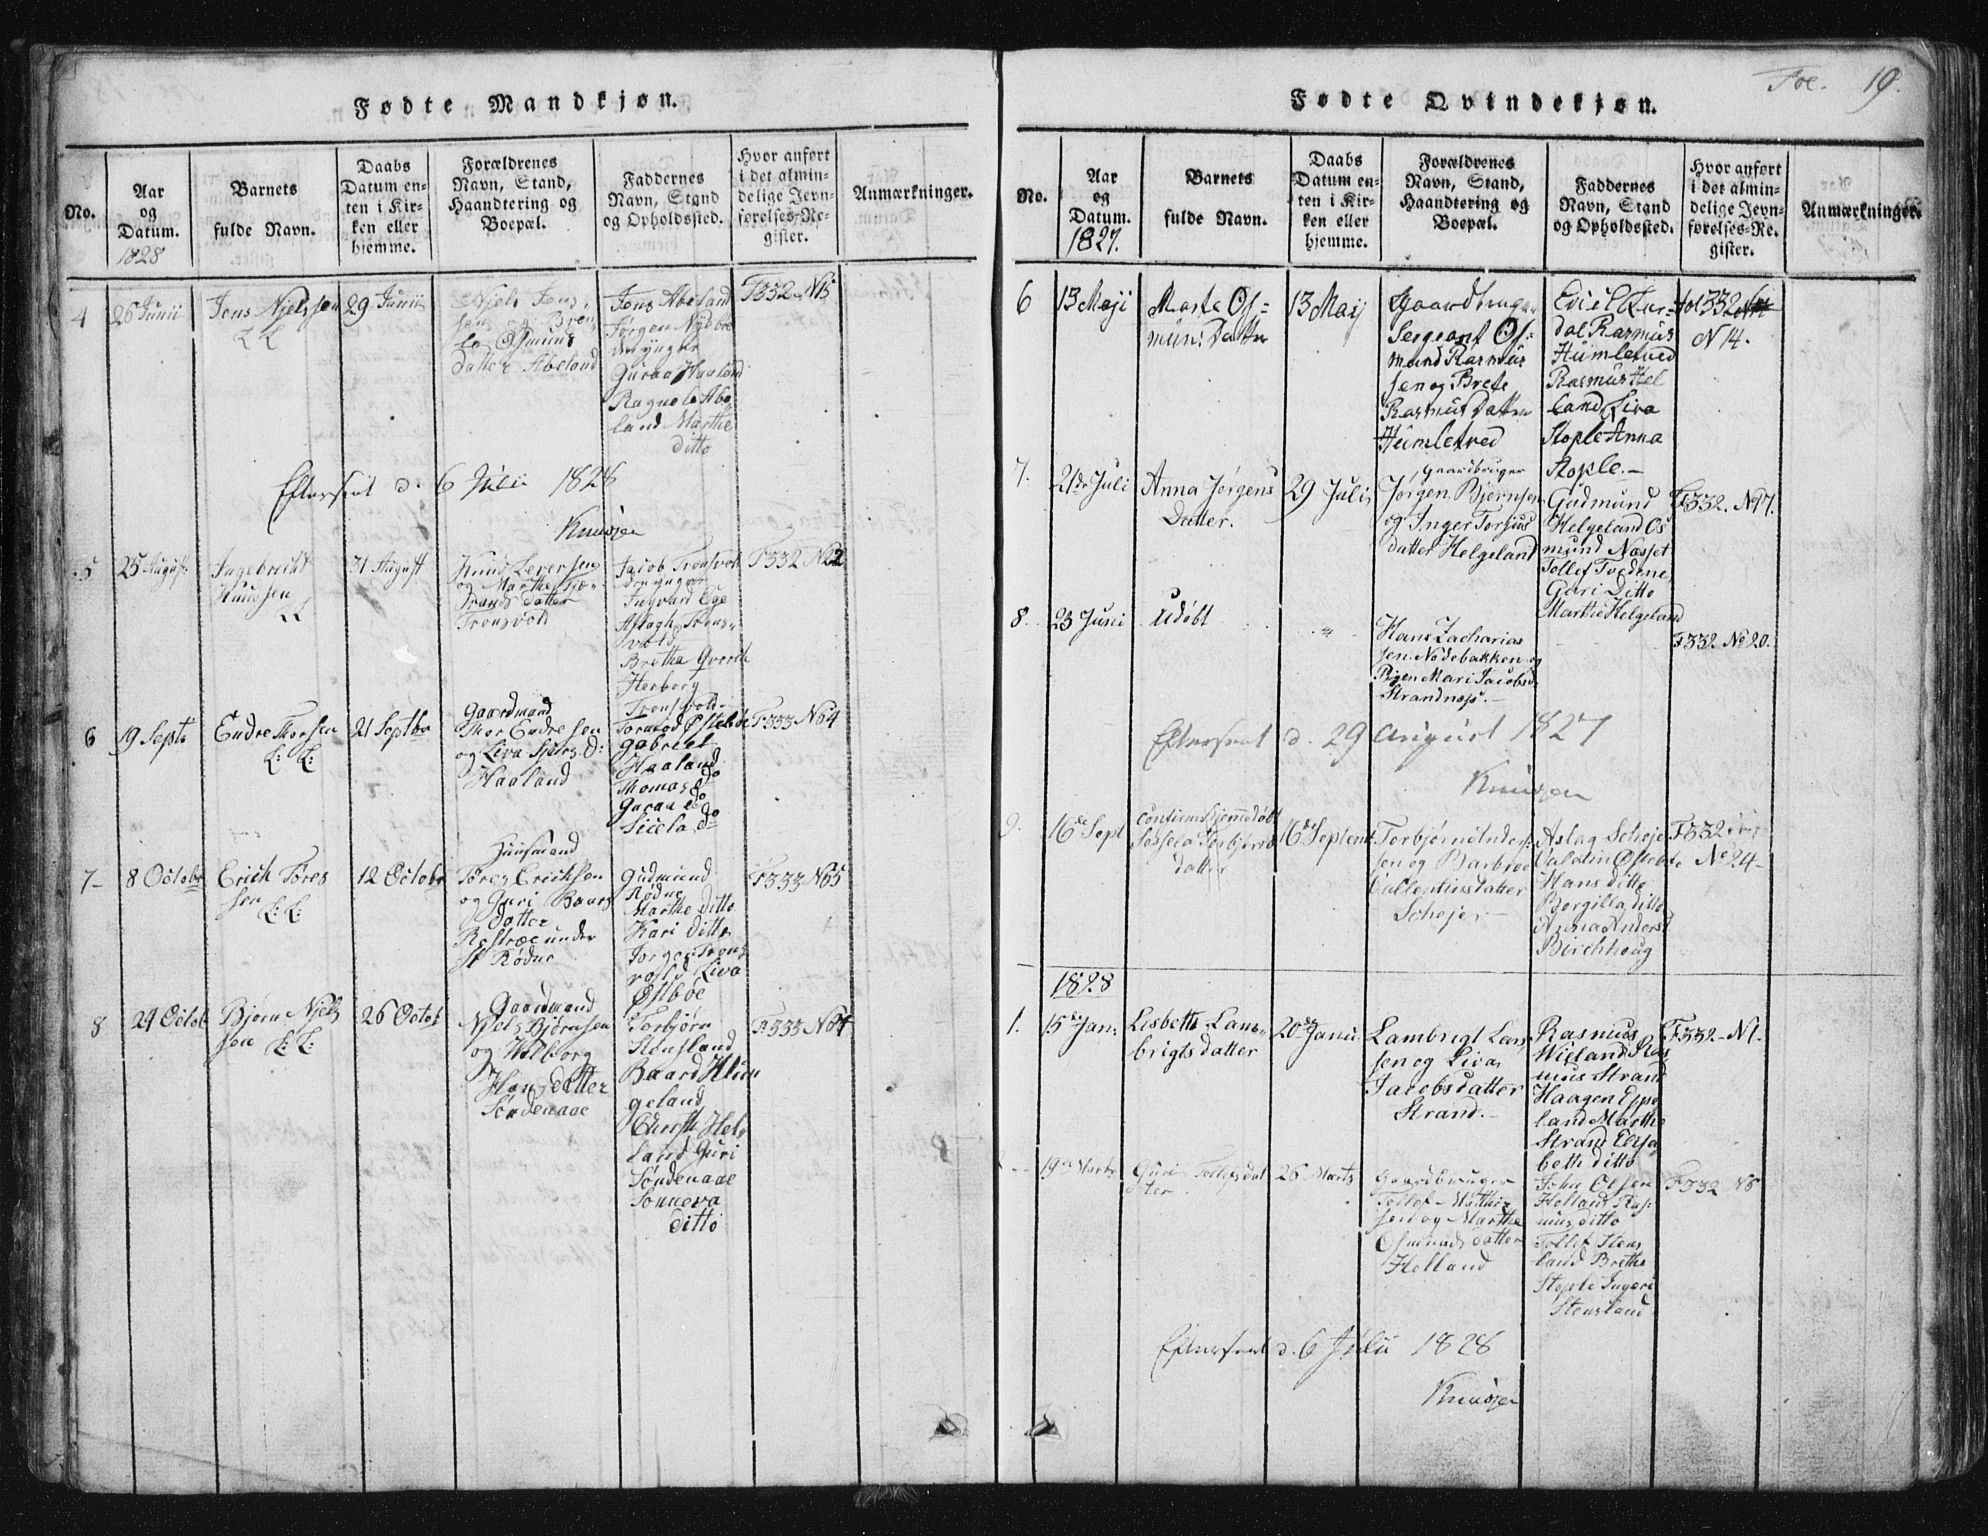 Fødte Mandkjøn.
No.
Aar
og
Datum.
1828
Barnets
fulde Navn.
Daabs
Datum en-
ten i Kir-
ken eller
hjemme.
Forældrenes
Navn, Stand,
Haandtering og
Boepæl.
Faddernes
Navn, Stand
og Opholdssted.
Hvor anført
i det almin-
delige Jevn-
førelses-Re-
gister.
Anmærkninger.
4
26 Junii
Jens Njelssen
29 Junii
Njels Jens-
sen og
Osmuns
Datter Abeland
Jens Abeland
Jørgen
den yngre
Guraa Haaland
Ragnele Abe
land Marthe
ditto
F332 N15
Efterseet d. 6 Julii 1828
Knudsen
5
25 August
Ingebricht
Knudsen
31 August
Knud
og Marthe
Trands datter
Tronsvold
Jacob Tronsvold
den yngre
Ingvard Ege
Aslagh Trons-
vold
Bretha
Herborg
Tronsvold
F332 N22
6
19 Septr
Endre Thorsen
21 Septbr
Gaardmand
Thor Endresen
og Liva
Haaland
Tormod Østebøe
Gabriel
Haaland
Thomas do
Guraa do
Sicela do
F333 No4
7-
8 Octobr
Erich Tøres
sen
12 Octobr
Huusmand
Tøres Ericksen
og Guri Baars
datter
under
Rødne
Gudmund
Rødne
Marthe ditto
Kari ditto
Jørgen Trons
vold Liva
Østbøe
F333 No5
8
24 Octob
Bjørn Njels
sen
26 Octob
Gaardmand
Njels Bjørnsen
og Wilborg
Hansdatter
Søndenaae
Torbjørn
Stensland
Baard
geland
Hel
land Guri
Søndenaae
Sønneva
ditto
F333 No7
Foe. 19.
Fødte Qvindekjøn.
No.
Aar
og
Datum.
1827.
Barnets
fulde Navn.
Daabs
Datum en-
ten i Kir-
ken eller
hjemme.
Forældrenes
Navn, Stand,
Haandtering og
Boepæl.
Faddernes
Navn, Stand
og Opholdssted.
Hvor anført
i det almin-
delige Jevn-
førelses-Re-
gister.
Anmærkninger.
6
13 Maji
Marte Os-
muns Datter
13 Maij
Gaardbruger
Sergeant Os-
mund Rasmus
sen og Brete
Rasmus Datter
Humletved
dal Rasmus
Humletved
Rasmus Hel
land Liva
Stople Anna
Stople.-
fol 332
N 14.
7.
21de Juli
Anna Jørgens
Datter.
29 Juli
Gaardbruger
Jørgen Bjørnsen
og Inger Torjus
datter Helgeland
Gudmund
Helgeland Os
mund Næsset
Tollef Tvedene
Guri Ditto
Marthe Helgeland
F332. No17.
8.
23 Juni
Udøbt
Hans Zacharias
sen Nødebakken og
Pigen Mari Jacobsd
Strandnæs.-
F332 No20.
Efterseet d. 29 August 1827
Knudsen
9.
16de Sept
Confirm: hjemmedøbt
Torbjørns
datter
16de Septem
Torbjørn Anders-
sen og Barbroe
Vallentinsdatter
Schejer-
Aslag Scheje
Valentin Østebøe
Hans ditto
Borgilla ditto
Anna Andersd
Birchhoug
F332
No 24-
1828
1.
15de Jan:
Lisbette Lam-
brigts datter
20de Janu.
Lambrigt Lars
sen og Liva
Jacobsdatter
Strand.-
Rasmus
Wieland Ras
mus Strand
Haagen Eppe
land Marthe
Strand Elisa
beth ditto
F332-N1.
19de Martz
Guri Tollefsdat
ter
26 Martz
Gaardbruger
Tollef Matthi-
sen og Marthe
Osmunds datter
Helland
John Olsen
Helland Ras-
mus ditto
Tollef Stens
land Brethe
Stople Ingeri
Stensland
F332 N8
Eftersеet d. 6 Julii 1828
Knudsen